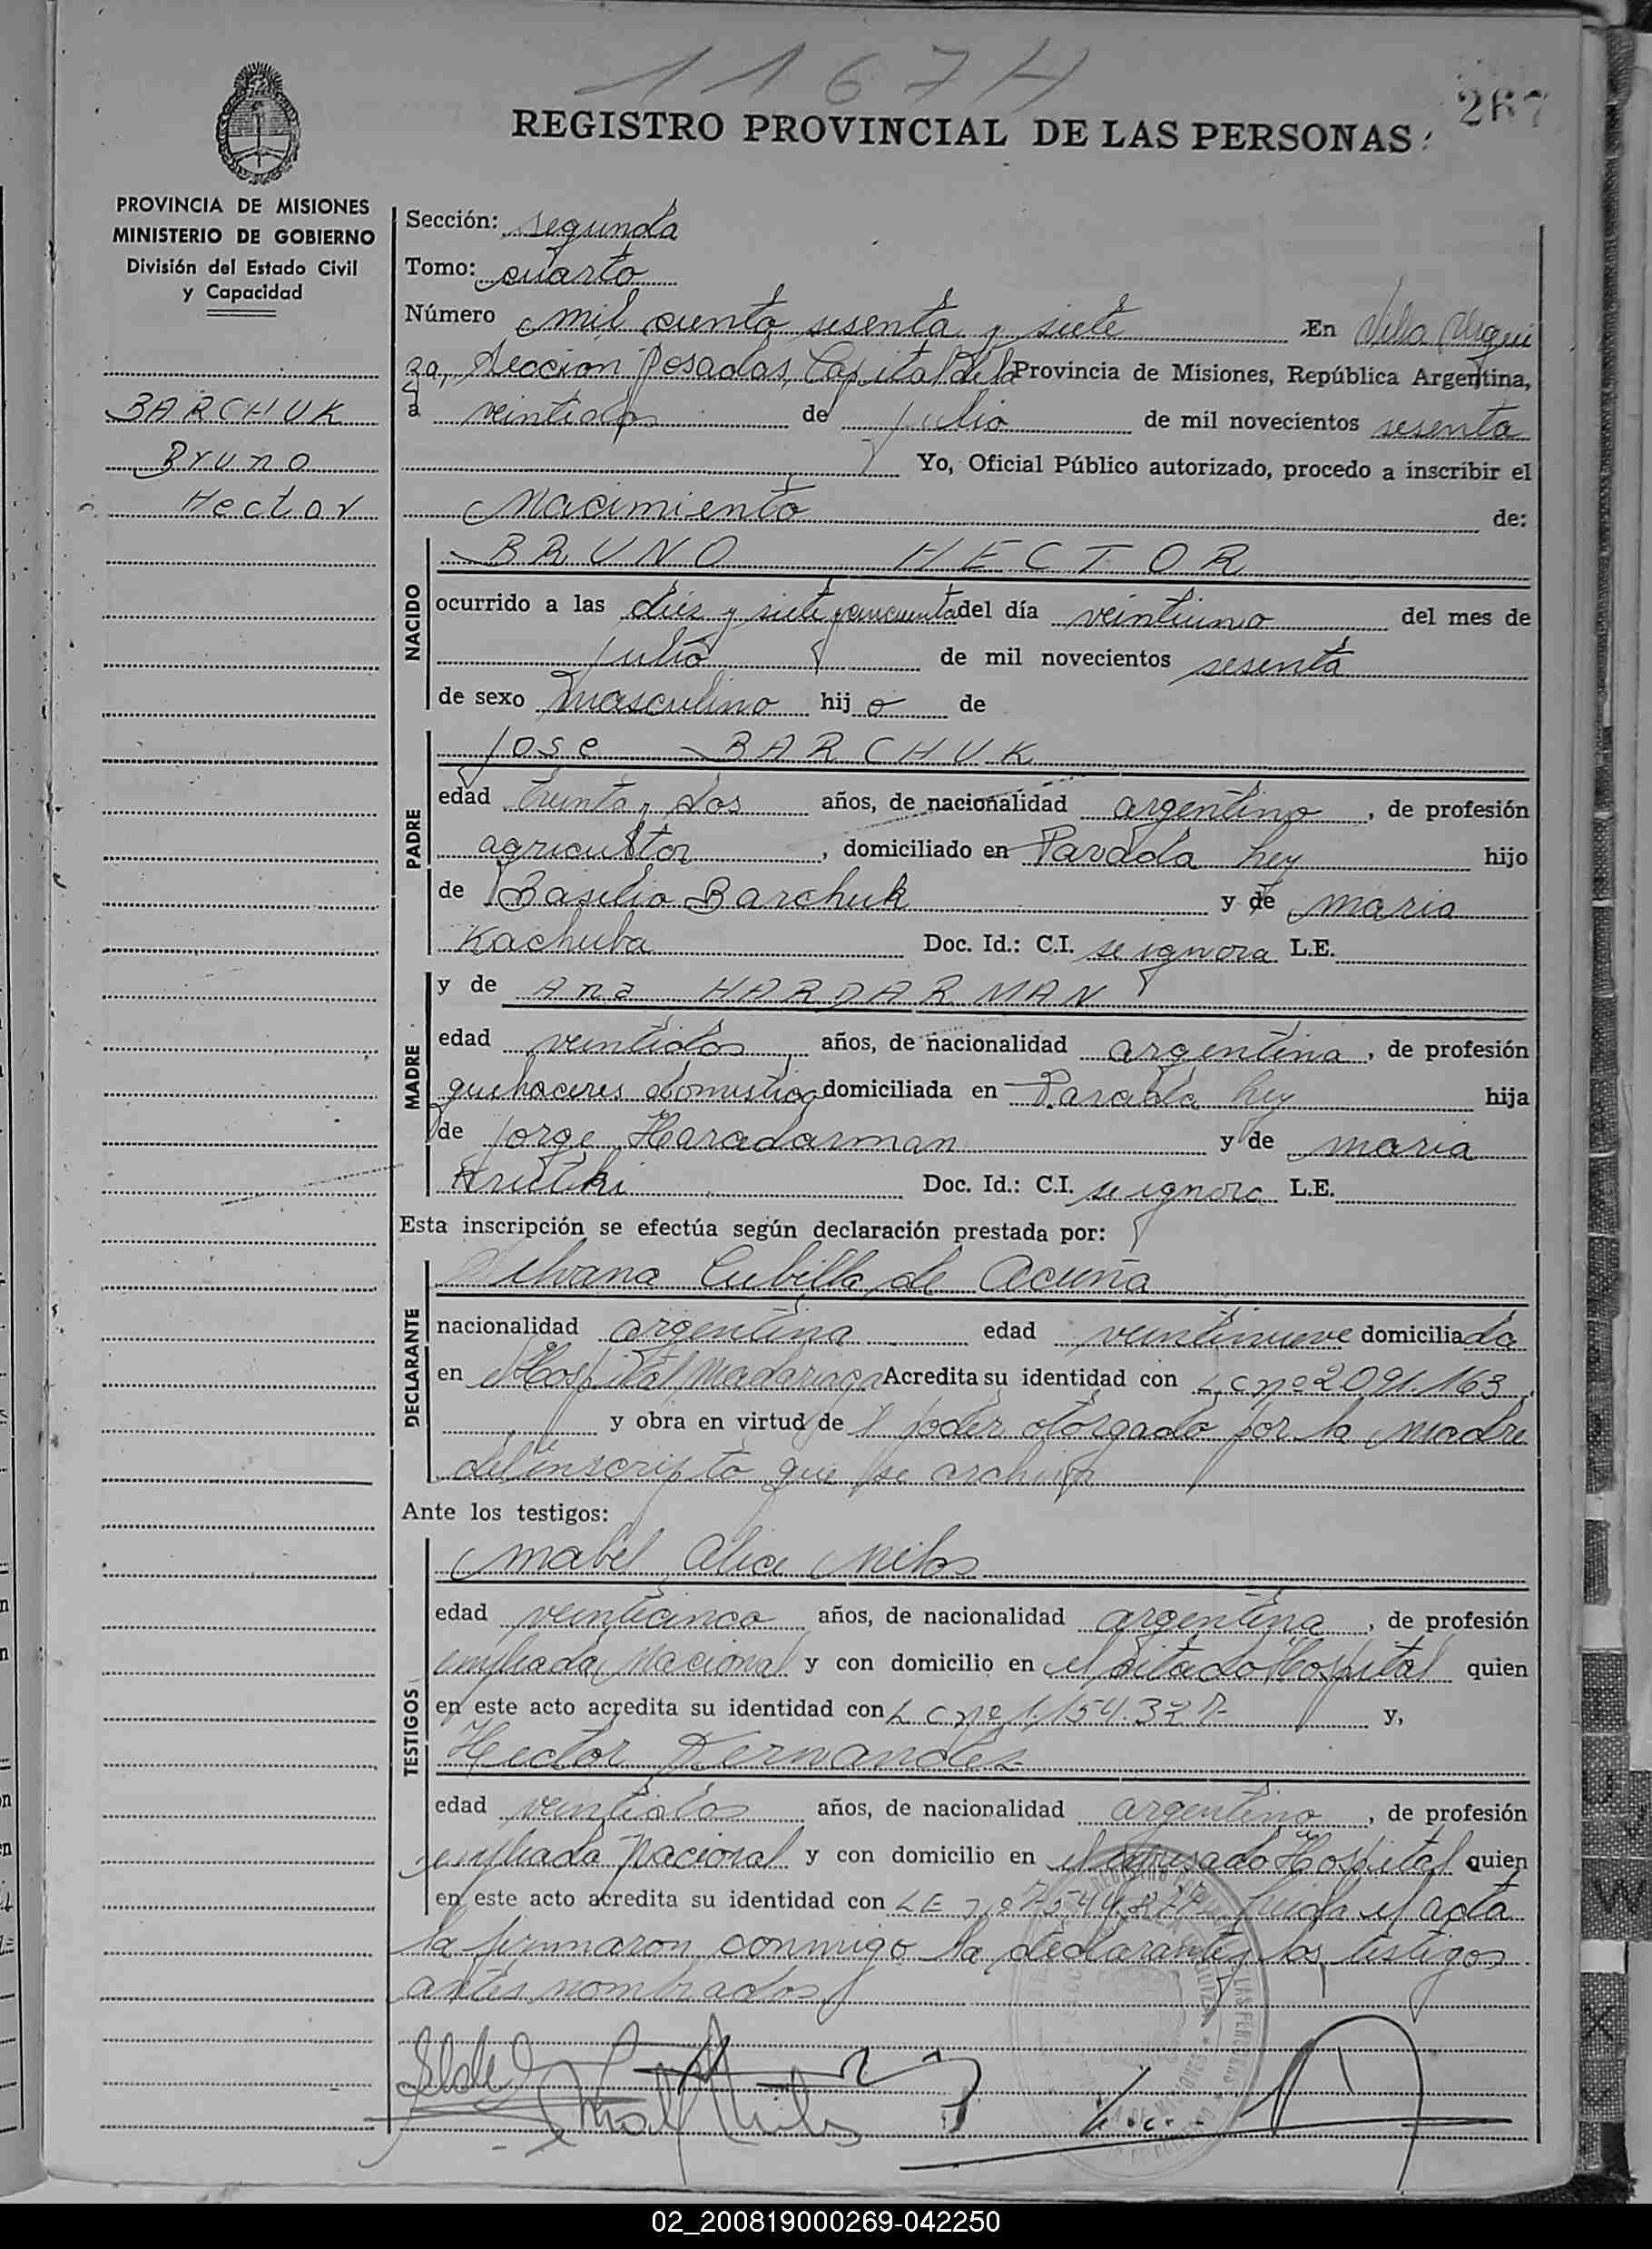 1167H
267
REGISTRO PROVINCIAL DE LAS PERSONAS
PROVINCIA DE MISIONES
MINISTERIO DE GOBIERNO
División del Estado Civil
y Capacidad
BARCHUK
Bruno
Hector
Sección: segunda
Tomo: cuarto
Número mil ciento sesenta y siete En Villa Urqui
za, Seccion Posadas, Capital de la Provincia de Misiones, República Argentina,
a veintidos de julio de mil novecientos sesenta
Yo, Oficial Público autorizado, procedo a inscribir el
Nacimiento de:
NACIDO
BRUNO HECTOR
ocurrido a las diez y siete y cincuenta del día veintiuno del mes de
julio de mil novecientos sesenta
de sexo masculino hijo de
PADRE
Jose BARCHUK
edad treinta y dos años, de nacionalidad argentino, de profesión
agricultor, domiciliado en Parada hijo
de Basilio Barchuk y de maria
Kachuba Doc. Id.: C.I. se ignora L.E.
MADRE
y de Ana HARDARMAN
edad veintidos años, de nacionalidad argentina, de profesión
quehaceres domestico domiciliada en Parada hija
de Jorge Haradarman y de maria
Doc. Id.: C.I. se ignora L.E.
Esta inscripción se efectúa según declaración prestada por:
DECLARANTE
Silvana Cubilla de Acuña
nacionalidad argentina edad veintinueve domiciliada
en Hospital Madariaga Acredita su identidad con L c nº 2091.163
y obra en virtud de l poder otorgado por la madre
del inscripto que se archiva
Ante los testigos:
TESTIGOS
Mabel Alice
edad veinticinco años, de nacionalidad argentina, de profesión
empleada Nacional y con domicilio en el citado Hospital quien
en este acto acredita su identidad con L c nº 1.154.327 y,
Hector Fernandez
edad veintidos años, de nacionalidad argentino, de profesión
empleado Nacional y con domicilio en el expresado Hospital quien
en este acto acredita su identidad con LE nº 7.544. leida el acta
la firmaron conmigo la declarante y los testigos
antes nombrados
02_200819000269-042250